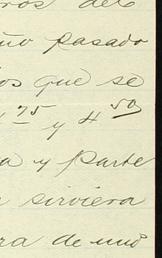 ros del
ño pasado
os que se
75 y 4 50
a y parte
sirviera
ra de uno